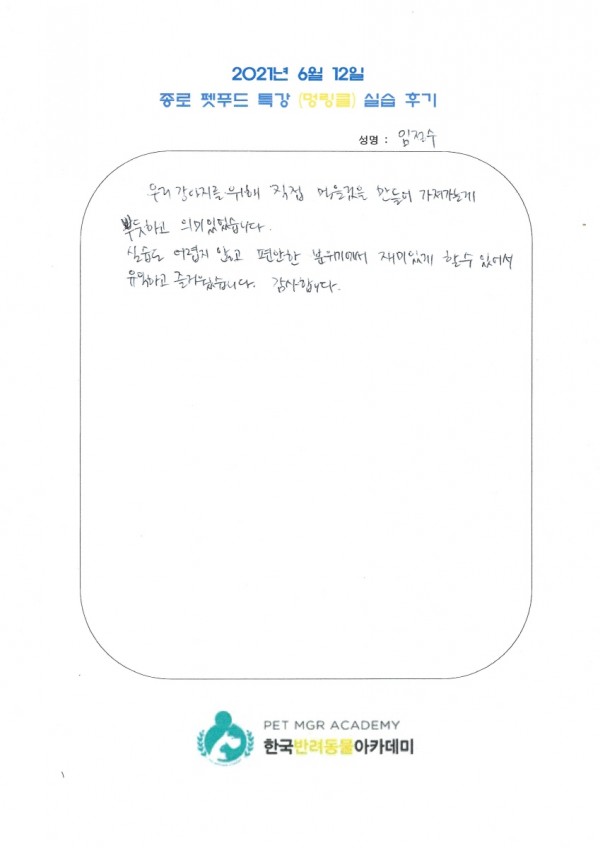 2021년 6월 12일
종로 펫푸드 특강 (멍링클) 실습 후기
성명 : 임전수
우리 강아지를 위해 직접 먹을것을 만들어 가져가는게
뿌듯하고 의미있었습니다.
실습도 어렵지 않고 편안한 분위기에서 재미있게 할수 있어서
유익하고 즐거웠습니다. 감사합니다.
PET MGR ACADEMY
한국반려동물아카데미